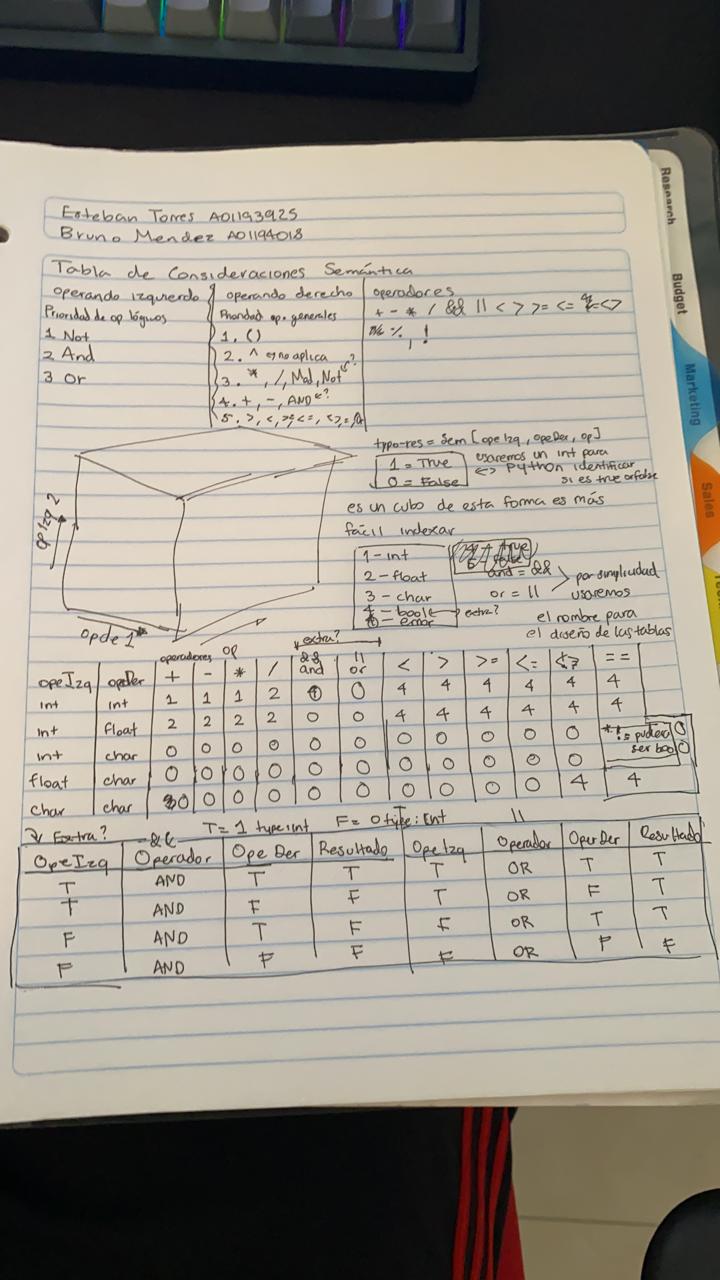 Esteban Torres A01193925
Bruno Mendez A01194018
Tabla de Consideraciones Semántica
operando izquierdo
Prioridad de op lógicos
1 Not
2 And
3 Or
operando derecho
Prioridad op. generales
1. ()
2. ^ no aplica
3. *, /, Mod, Not ?
4. +, -, AND ?
5. >, <, >=, <=, <>, =, Or
operadores
+ - * / && || < > >= <= <>
%, !
typo-res = Sem [opeIzq, opeDer, op]
1 = True
0 = False
usaremos un int para
<=> Python identificar
si es true or false
es un cubo de esta forma es más
fácil indexar
1 - int
2 - float
3 - char
4 - bool extra?
- error
and = &&
or = ||
por simplicidad
usaremos
el nombre para
el diseño de las tablas
ope Izq 2
op de 1
op
operadores
extra?
opeIzq opeDer + - * / && and || or < > >= <= <> ==
int int 1 1 1 2 0 4 4 4 4 4 4
int float 2 2 2 2 0 0 4 4 4 4 4 4
int char 0 0 0 0 0 0 0 0 0 0 0 0
float char 0 0 0 0 0 0 0 0 0 0 0 0
char char 0 0 0 0 0 0 0 0 0 0 4 4
* != pudiera
ser bool
Extra? && T = 1 type: int F = 0 type: Int ||
OpeIzq Operador Ope Der Resultado OpeIzq Operador OperDer Resultado
T AND T T T OR T T
T AND F F T OR F T
F AND T F F OR T T
F AND F F F OR F F
Research
Budget
Marketing
Sales